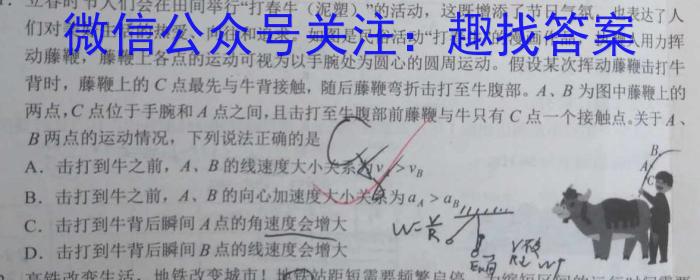 立春时节人们会在田间举行“打春牛（泥塑）”的活动，这既增添了节日气氛，也表达了人
微信公众号关注：趣找答案
动藤鞭，藤鞭上各点的运动可视为以手腕处为圆心的圆周运动。假设某次挥动藤鞭击打牛
背时，藤鞭上的 C 点最先与牛背接触，随后藤鞭弯折击打至牛腹部。A、B 为图中藤鞭上的
两点，C 点位于手腕和 A 点之间，且击打至牛腹部前藤鞭与牛只有 C 点一个接触点。关于 A、
B 两点的运动情况，下列说法正确的是
A．击打到牛之前，A、B 的线速度大小关系为vA > vB
B．击打到牛之前，A、B 的向心加速度大小关系为 aA > aB
C．击打到牛背后瞬间 A 点的角速度会增大
D．击打到牛背后瞬间 B 点的线速度会增大
B
A
C
W=V/R
V不
高铁改变生活，地铁改变城市！地铁站距短需要频繁启停